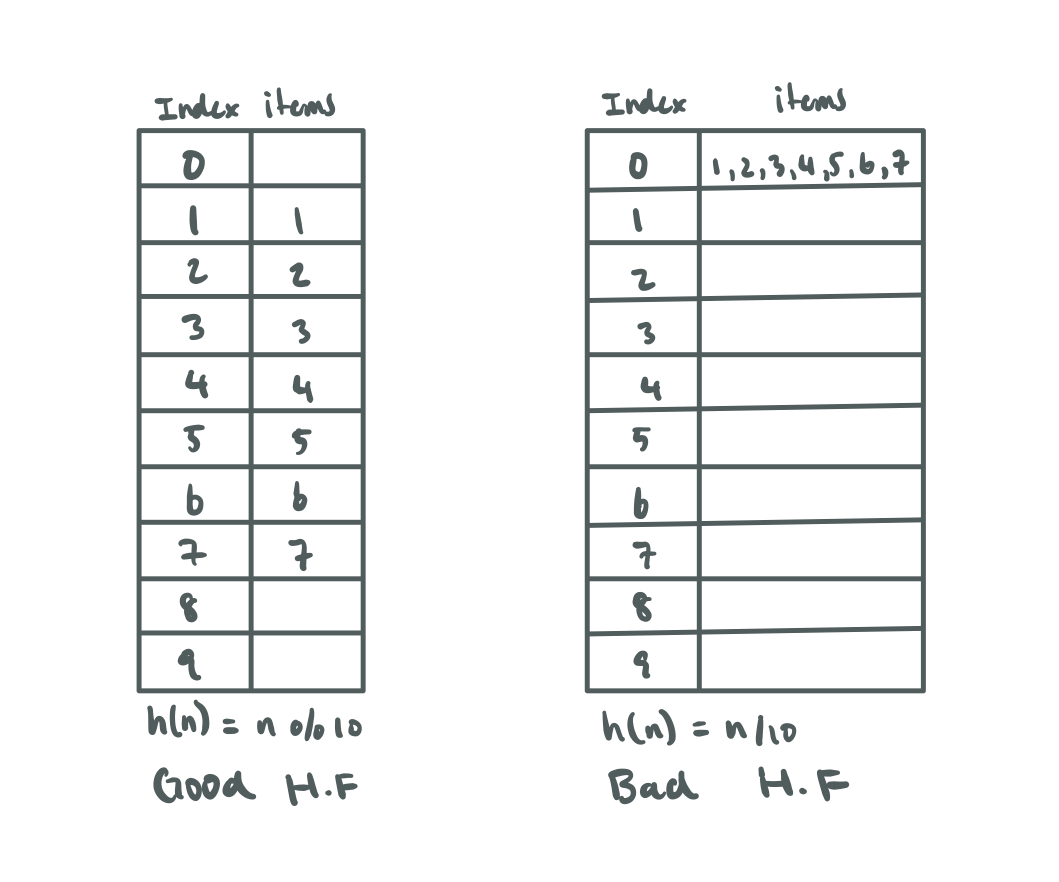 Index items
0
1 1
2 2
3 3
4 4
5 5
6 6
7 7
8
9
h(n) = n % 10
Good H.F
Index items
0 1,2,3,4,5,6,7
1
2
3
4
5
6
7
8
9
h(n) = n/10
Bad H.F